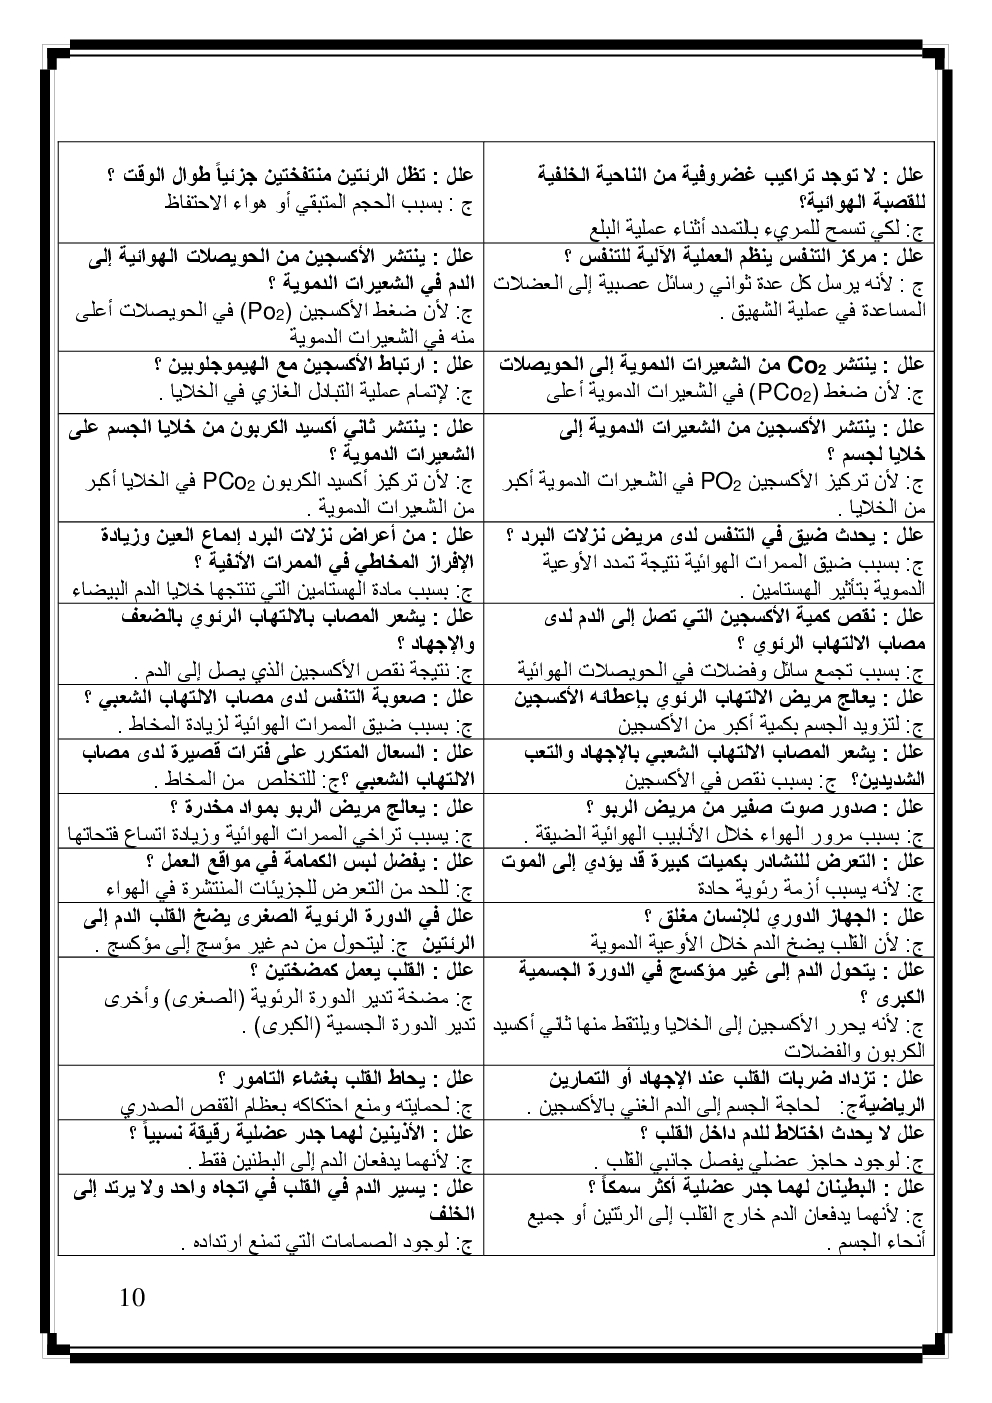 علل : لا توجد تراكيب غضروفية من الناحية الخلفية
للقصبة الهوائية؟
ج: لكي تسمح للمريء بالتمدد أثناء عملية البلع
علل : تظل الرئتين منتفختين جزئياً طوال الوقت ؟
ج : بسبب الحجم المتبقي أو هواء الاحتفاظ
علل : مركز التنفس ينظم العملية الآلية للتنفس ؟
ج : لأنه يرسل كل عدة ثواني رسائل عصبية إلى العضلات
المساعدة في عملية الشهيق .
علل : ينتشر الأكسجين من الحويصلات الهوائية إلى
الدم في الشعيرات الدموية ؟
ج: لأن ضغط الأكسجين (Po2) في الحويصلات أعلى
منه في الشعيرات الدموية
علل : ينتشر Co2 من الشعيرات الدموية إلى الحويصلات
ج: لأن ضغط (PCo2) في الشعيرات الدموية أعلى
علل : ارتباط الأكسجين مع الهيموجلوبين ؟
ج: لإتمام عملية التبادل الغازي في الخلايا .
علل : ينتشر الأكسجين من الشعيرات الدموية إلى
خلايا لجسم ؟
ج: لأن تركيز الأكسجين PO2 في الشعيرات الدموية أكبر
من الخلايا .
علل : ينتشر ثاني أكسيد الكربون من خلايا الجسم على
الشعيرات الدموية ؟
ج: لأن تركيز أكسيد الكربون PCo2 في الخلايا أكبر
من الشعيرات الدموية .
علل : يحدث ضيق في التنفس لدى مريض نزلات البرد ؟
ج: بسبب ضيق الممرات الهوائية نتيجة تمدد الأوعية
الدموية بتأثير الهستامين .
علل : من أعراض نزلات البرد إدماع العين وزيادة
الإفراز المخاطي في الممرات الأنفية ؟
ج: بسبب مادة الهستامين التي تنتجها خلايا الدم البيضاء
علل : نقص كمية الأكسجين التي تصل إلى الدم لدى
مصاب الالتهاب الرئوي ؟
ج: بسبب تجمع سائل وفضلات في الحويصلات الهوائية
علل : يشعر المصاب بالالتهاب الرئوي بالضعف
والإجهاد ؟
ج: نتيجة نقص الأكسجين الذي يصل إلى الدم .
علل : يعالج مريض الالتهاب الرئوي بإعطائه الأكسجين
ج: لتزويد الجسم بكمية أكبر من الأكسجين
علل : صعوبة التنفس لدى مصاب الالتهاب الشعبي ؟
ج: بسبب ضيق الممرات الهوائية لزيادة المخاط .
علل : يشعر المصاب الالتهاب الشعبي بالإجهاد والتعب
الشديدين؟ ج: بسبب نقص في الأكسجين
علل : السعال المتكرر على فترات قصيرة لدى مصاب
الالتهاب الشعبي ؟ج: للتخلص من المخاط .
علل : صدور صوت صفير من مريض الربو ؟
ج: بسبب مرور الهواء خلال الأنابيب الهوائية الضيقة .
علل : يعالج مريض الربو بمواد مخدرة ؟
ج: يسبب تراخي الممرات الهوائية وزيادة اتساع فتحاتها
علل : التعرض للنشادر بكميات كبيرة قد يؤدي إلى الموت
ج: لأنه يسبب أزمة رئوية حادة
علل : يفضل لبس الكمامة في مواقع العمل ؟
ج: للحد من التعرض للجزيئات المنتشرة في الهواء
علل : الجهاز الدوري للإنسان مغلق ؟
ج: لأن القلب يضخ الدم خلال الأوعية الدموية
علل في الدورة الرئوية الصغرى يضخ القلب الدم إلى
الرئتين ج: ليتحول من دم غير مؤسج إلى مؤكسج .
علل : يتحول الدم إلى غير مؤكسج في الدورة الجسمية
الكبرى ؟
ج: لأنه يحرر الأكسجين إلى الخلايا ويلتقط منها ثاني أكسيد
الكربون والفضلات
علل : القلب يعمل كمضختين ؟
ج: مضخة تدير الدورة الرئوية (الصغرى) وأخرى
تدير الدورة الجسمية (الكبرى) .
علل : تزداد ضربات القلب عند الإجهاد أو التمارين
الرياضيةج: لحاجة الجسم إلى الدم الغني بالأكسجين .
علل : يحاط القلب بغشاء التامور ؟
ج: لحمايته ومنع احتكاكه بعظام القفص الصدري
علل لا يحدث اختلاط للدم داخل القلب ؟
ج: لوجود حاجز عضلي يفصل جانبي القلب .
علل : الأذينين لهما جدر عضلية رقيقة نسبياً ؟
ج: لأنهما يدفعان الدم إلى البطنين فقط .
علل : البطينان لهما جدر عضلية أكثر سمكاً ؟
ج: لأنهما يدفعان الدم خارج القلب إلى الرئتين أو جميع
أنحاء الجسم .
علل : يسير الدم في القلب في اتجاه واحد ولا يرتد إلى
الخلف
ج: لوجود الصمامات التي تمنع ارتداده .
10